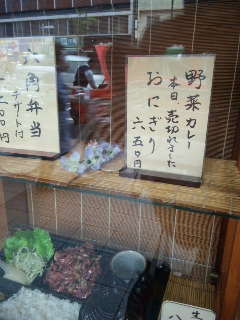 野菜カレー
本日売切れました
おにぎり
六五〇円
角弁当
デザート付